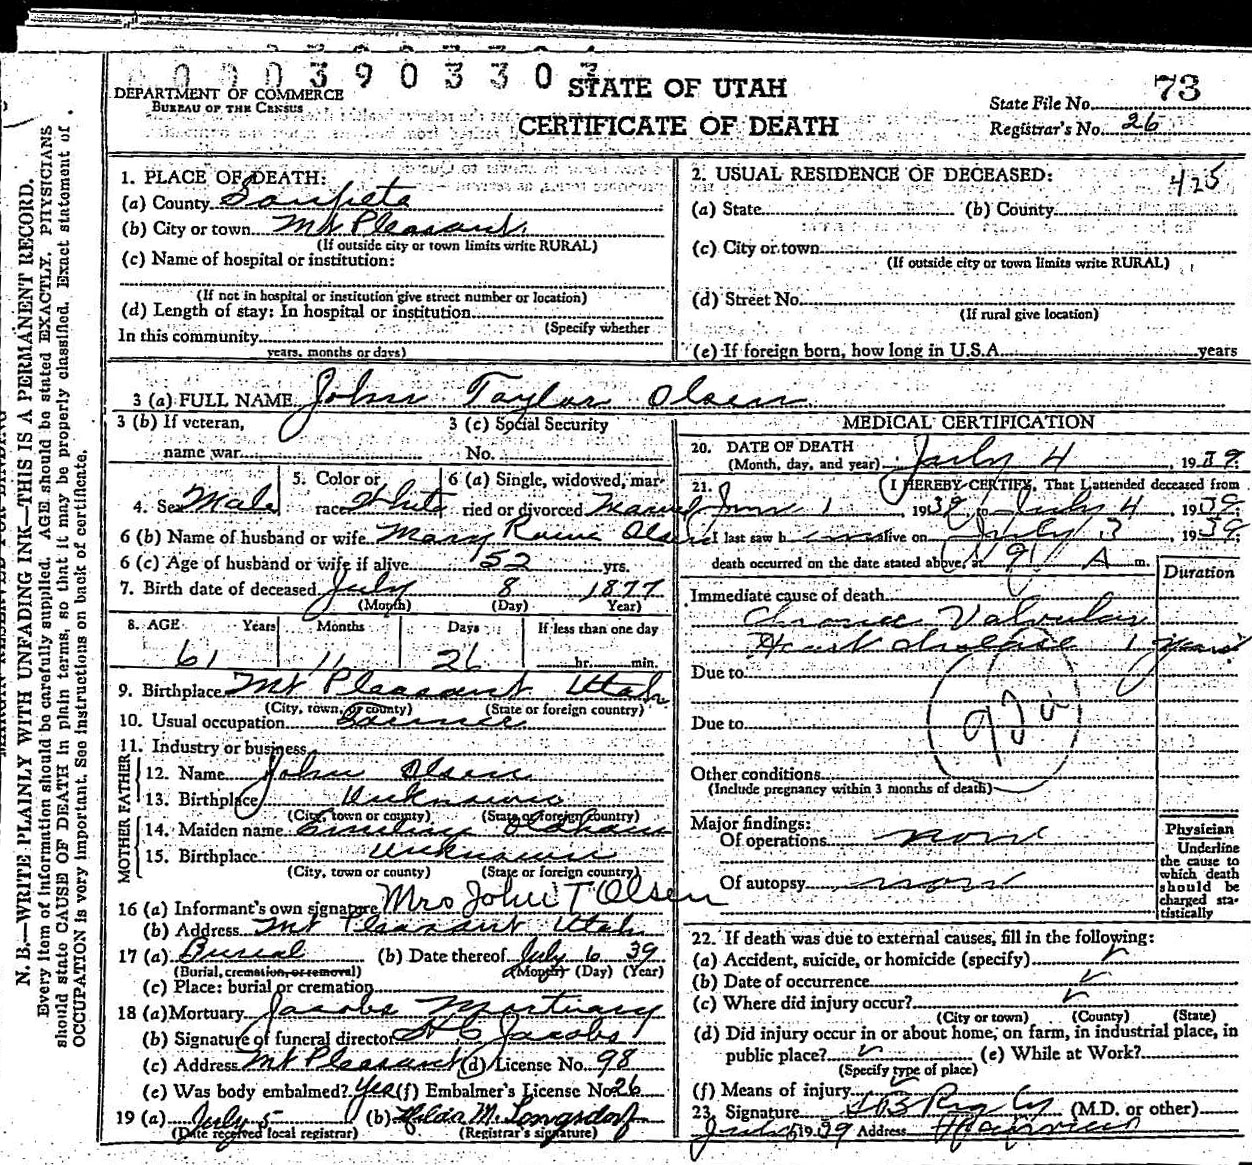 0 0 0 0 3 9 0 3 3 0 3
DEPARTMENT OF COMMERCE
BUREAU OF THE CENSUS
STATE OF UTAH
CERTIFICATE OF DEATH
State File No. 73
Registrar's No. 26
N. B.—WRITE PLAINLY WITH UNFADING INK—THIS IS A PERMANENT RECORD.
Every item of information should be carefully supplied. AGE should be stated EXACTLY. PHYSICIANS
should state CAUSE OF DEATH in plain terms, so that it may be properly classified. Exact statement of
OCCUPATION is very important. See instructions on back of certificate.
1. PLACE OF DEATH:
(a) County Sanpete
(b) City or town Mt Pleasant
(If outside city or town limits write RURAL)
(c) Name of hospital or institution:
(If not in hospital or institution give street number or location)
(d) Length of stay: In hospital or institution
(Specify whether
In this community
years, months or days)
2. USUAL RESIDENCE OF DECEASED: 425
(a) State (b) County
(c) City or town
(If outside city or town limits write RURAL)
(d) Street No.
(If rural give location)
(e) If foreign born, how long in U.S.A. years
3 (a) FULL NAME John Taylor Olsen
3 (b) If veteran, 3 (c) Social Security
name war No.
4. Sex Male 5. Color or race White 6 (a) Single, widowed, married or divorced Married
6 (b) Name of husband or wife Mary Rowe Olsen
6 (c) Age of husband or wife if alive 52 yrs.
7. Birth date of deceased July 8 1877
(Month) (Day) Year)
8. AGE Years Months Days If less than one day
61 11 26 hr. min.
9. Birthplace Mt Pleasant Utah
(City, town, or county) (State or foreign country)
10. Usual occupation Farmer
11. Industry or business
FATHER
12. Name John Olsen
13. Birthplace Unknown
(City, town or county) (State or foreign country)
MOTHER
14. Maiden name Emeline Oldham
15. Birthplace Unknown
(City, town or county) (State or foreign country)
16 (a) Informant's own signature Mrs John T Olsen
(b) Address Mt Pleasant Utah
17 (a) Burial (b) Date thereof July 6 39
(Burial, cremation, or removal) (Month) (Day) (Year)
(c) Place: burial or cremation
18 (a) Mortuary Jacobs Mortuary
(b) Signature of funeral director Jacobs
(c) Address Mt Pleasant (d) License No. 98
(e) Was body embalmed? Yes (f) Embalmer's License No. 26
19 (a) July 5 (b) Hilda M. Longsdorf
(Date received local registrar) (Registrar's signature)
MEDICAL CERTIFICATION
20. DATE OF DEATH
(Month, day, and year) July 4, 1939
21. I HEREBY CERTIFY, That I attended deceased from
June 1 1939, to July 4 1939
I last saw him alive on July 3 1939
death occurred on the date stated above, at 9 A m.
Duration
Immediate cause of death
Chronic Valvular
Heart disease 1 year
Due to
Due to
Other conditions
(Include pregnancy within 3 months of death)
Major findings:
Of operations none
Of autopsy none
Physician
Underline
the cause to
which death
should be
charged sta-
tistically
22. If death was due to external causes, fill in the following:
(a) Accident, suicide, or homicide (specify)
(b) Date of occurrence
(c) Where did injury occur?
(City or town) (County) (State)
(d) Did injury occur in or about home, on farm, in industrial place, in
public place? (e) While at Work?
(Specify type of place)
(f) Means of injury
23. Signature (M.D. or other)
July 5 1939 Address Fairview